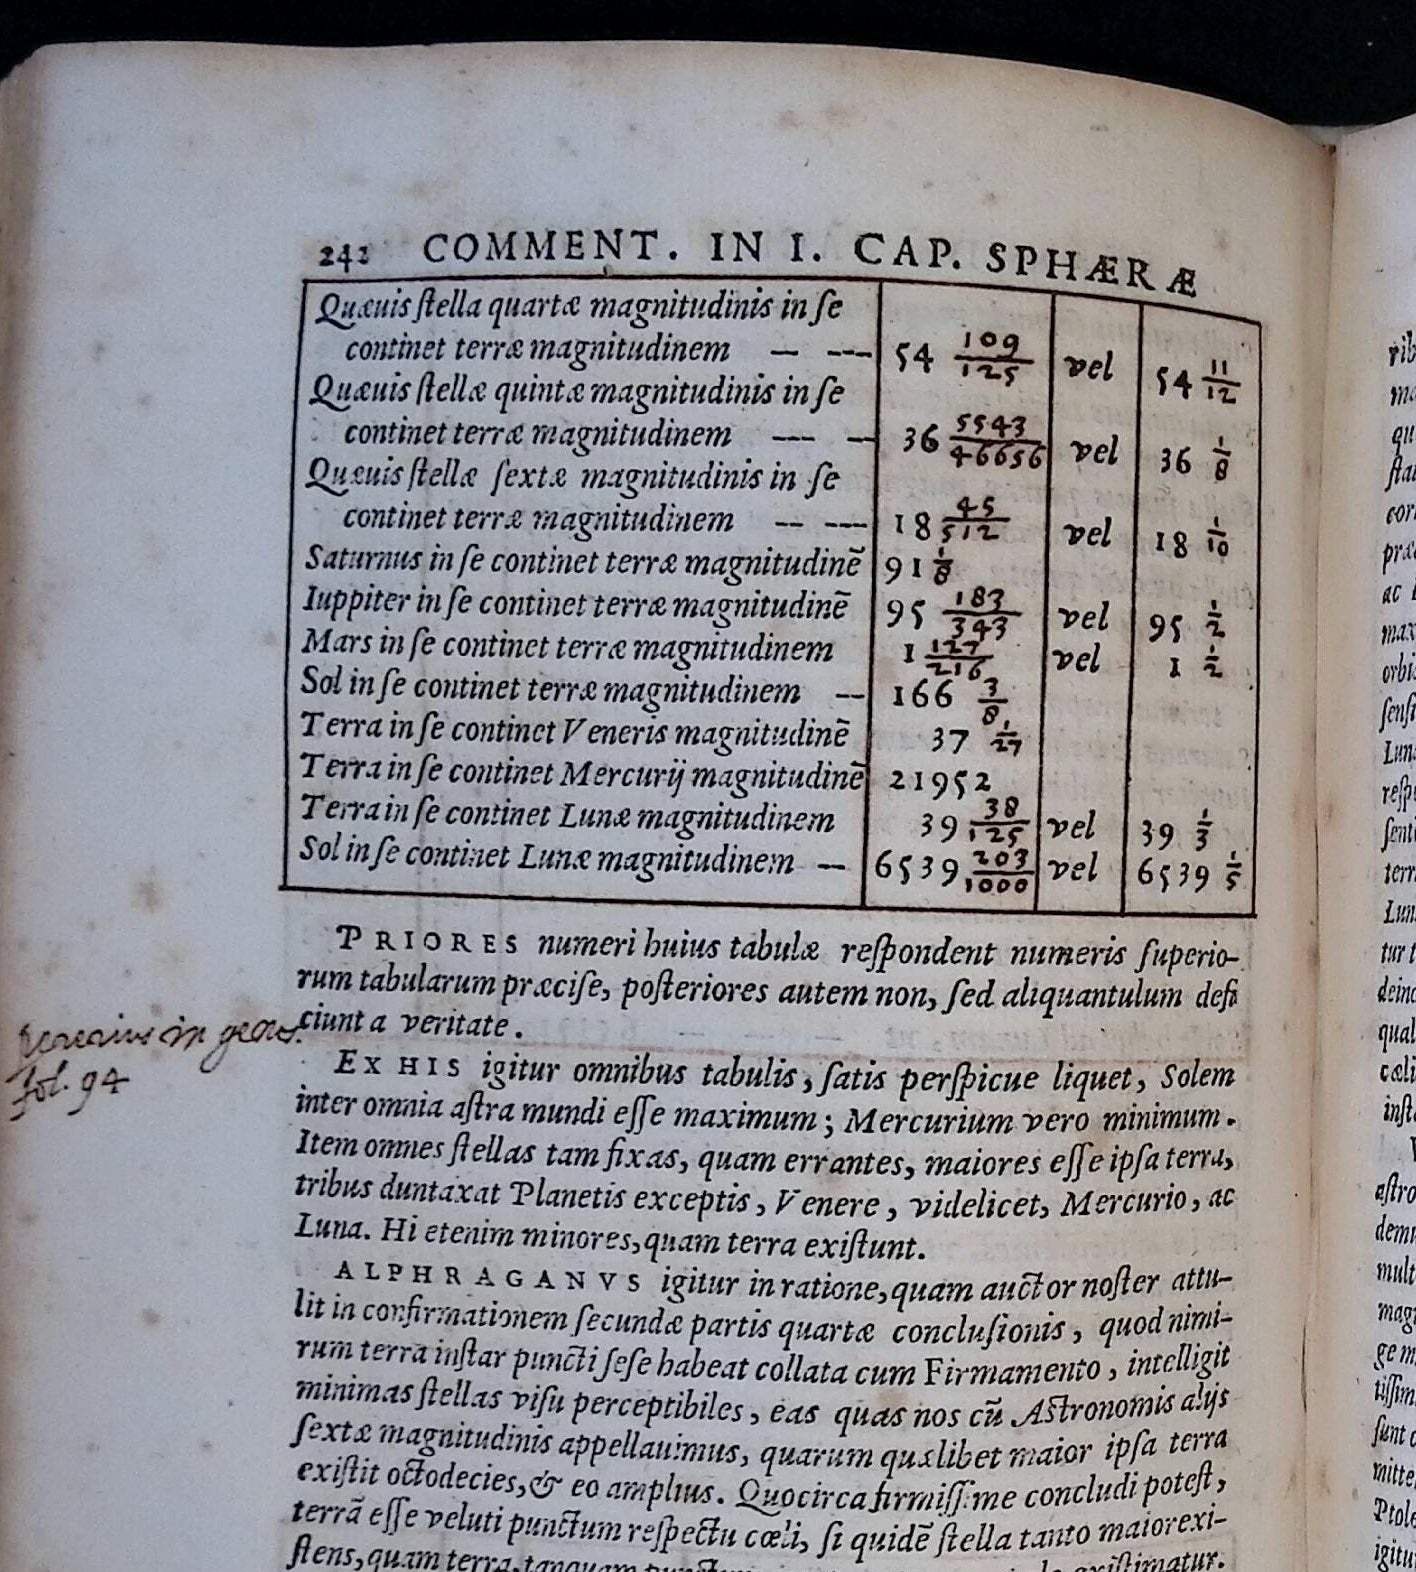 242 COMMENT. IN I. CAP. SPHÆRÆ
Quæuis ſtella quartæ magnitudinis in ſe
continet terræ magnitudinem — --- 54 109/125 vel 54 11/12
Quæuis ſtellæ quintæ magnitudinis in ſe
continet terræ magnitudinem --- — 36 5543/46656 vel 36 1/8
Quæuis ſtellæ ſextæ magnitudinis in ſe
continet terræ magnitudinem -- --- 18 45/512 vel 18 1/10
Saturnus in ſe continet terræ magnitudinē 91 1/8
Iuppiter in ſe continet terræ magnitudinē 95 183/343 vel 95 1/2
Mars in ſe continet terræ magnitudinem 1 127/216 vel 1 1/2
Sol in ſe continet terræ magnitudinem -- 166 3/8
Terra in ſe continet Veneris magnitudinē 37 1/27
Terra in ſe continet Mercurij magnitudinē 21952
Terra in ſe continet Lunæ magnitudinem 39 38/125 vel 39 1/3
Sol in ſe continet Lunæ magnitudinem — 6539 203/1000 vel 6539 1/5
PRIORES numeri huius tabulæ reſpondent numeris ſuperio-
rum tabularum præciſe, poſteriores autem non, ſed aliquantulum defi
ciunt a veritate.
in
fol. 94
EX HIS igitur omnibus tabulis, ſatis perſpicue liquet, Solem
inter omnia aſtra mundi eſſe maximum; Mercurium vero minimum.
Item omnes ſtellas tam fixas, quam errantes, maiores eſſe ipſa terra,
tribus duntaxat Planetis exceptis, Venere, videlicet, Mercurio, ac
Luna. Hi etenim minores, quam terra exiſtunt.
ALPHRAGANVS igitur in ratione, quam auctor noſter attu-
lit in confirmationem ſecundæ partis quartæ concluſionis, quod nimi-
rum terra inſtar puncti ſeſe habeat collata cum Firmamento, intelligit
minimas ſtellas viſu perceptibiles, eas quas nos cū Aſtronomis alijs
ſextæ magnitudinis appellauimus, quarum quælibet maior ipſa terra
exiſtit octodecies, & eo amplius. Quocirca firmiſſime concludi poteſt,
terrā eſſe veluti punctum reſpectu cœli, ſi quidē ſtella tanto maior exi-
ſtens, quam terra, tanquam exiſtimatur.